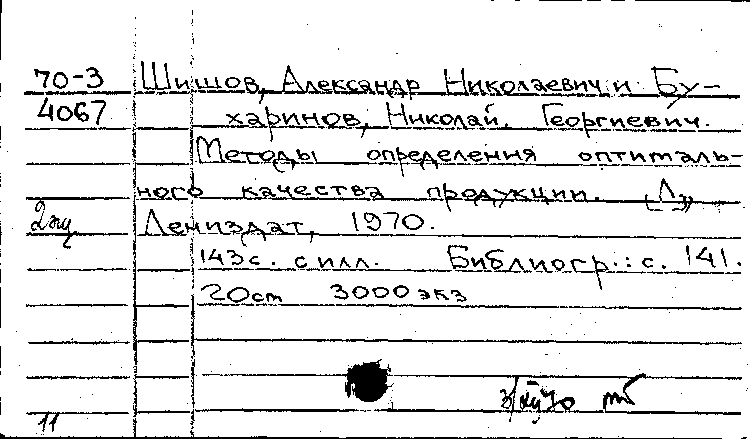 70-3 Шишов, Александр Николаевич и Бу-
4067 харинов, Николай Георгиевич.
Методы определения оптималь-
ного качества продукции. [Л.]
2 экз Лениздат, 1970.
143 с. с илл. Библиогр.: с. 141.
20 см 3000 экз
11